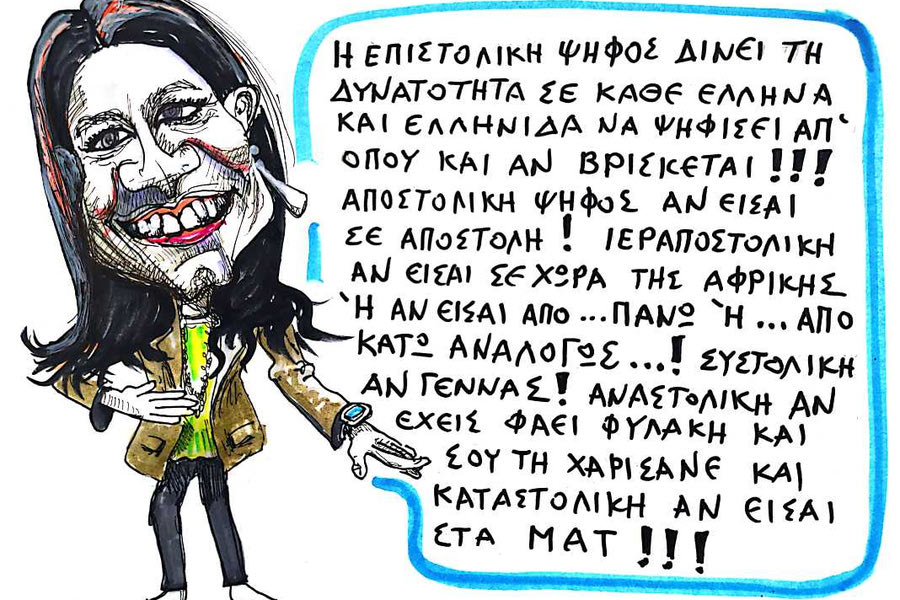 Η ΕΠΙΣΤΟΛΙΚΗ ΨΗΦΟΣ ΔΙΝΕΙ ΤΗ
ΔΥΝΑΤΟΤΗΤΑ ΣΕ ΚΑΘΕ ΕΛΛΗΝΑ
ΚΑΙ ΕΛΛΗΝΙΔΑ ΝΑ ΨΗΦΙΣΕΙ ΑΠ'
ΟΠΟΥ ΚΑΙ ΑΝ ΒΡΙΣΚΕΤΑΙ!!!
ΑΠΟΣΤΟΛΙΚΗ ΨΗΦΟΣ ΑΝ ΕΙΣΑΙ
ΣΕ ΑΠΟΣΤΟΛΗ! ΙΕΡΑΠΟΣΤΟΛΙΚΗ
ΑΝ ΕΙΣΑΙ ΣΕ ΧΩΡΑ ΤΗΣ ΑΦΡΙΚΗΣ
Ή ΑΝ ΕΙΣΑΙ ΑΠΟ...ΠΑΝΩ Ή...ΑΠΟ
ΚΑΤΩ ΑΝΑΛΟΓΩΣ...! ΣΥΣΤΟΛΙΚΗ
ΑΝ ΓΕΝΝΑΣ! ΑΝΑΣΤΟΛΙΚΗ ΑΝ
ΕΧΕΙΣ ΦΑΕΙ ΦΥΛΑΚΗ ΚΑΙ
ΣΟΥ ΤΗ ΧΑΡΙΣΑΝΕ ΚΑΙ
ΚΑΤΑΣΤΟΛΙΚΗ ΑΝ ΕΙΣΑΙ
ΣΤΑ ΜΑΤ!!!